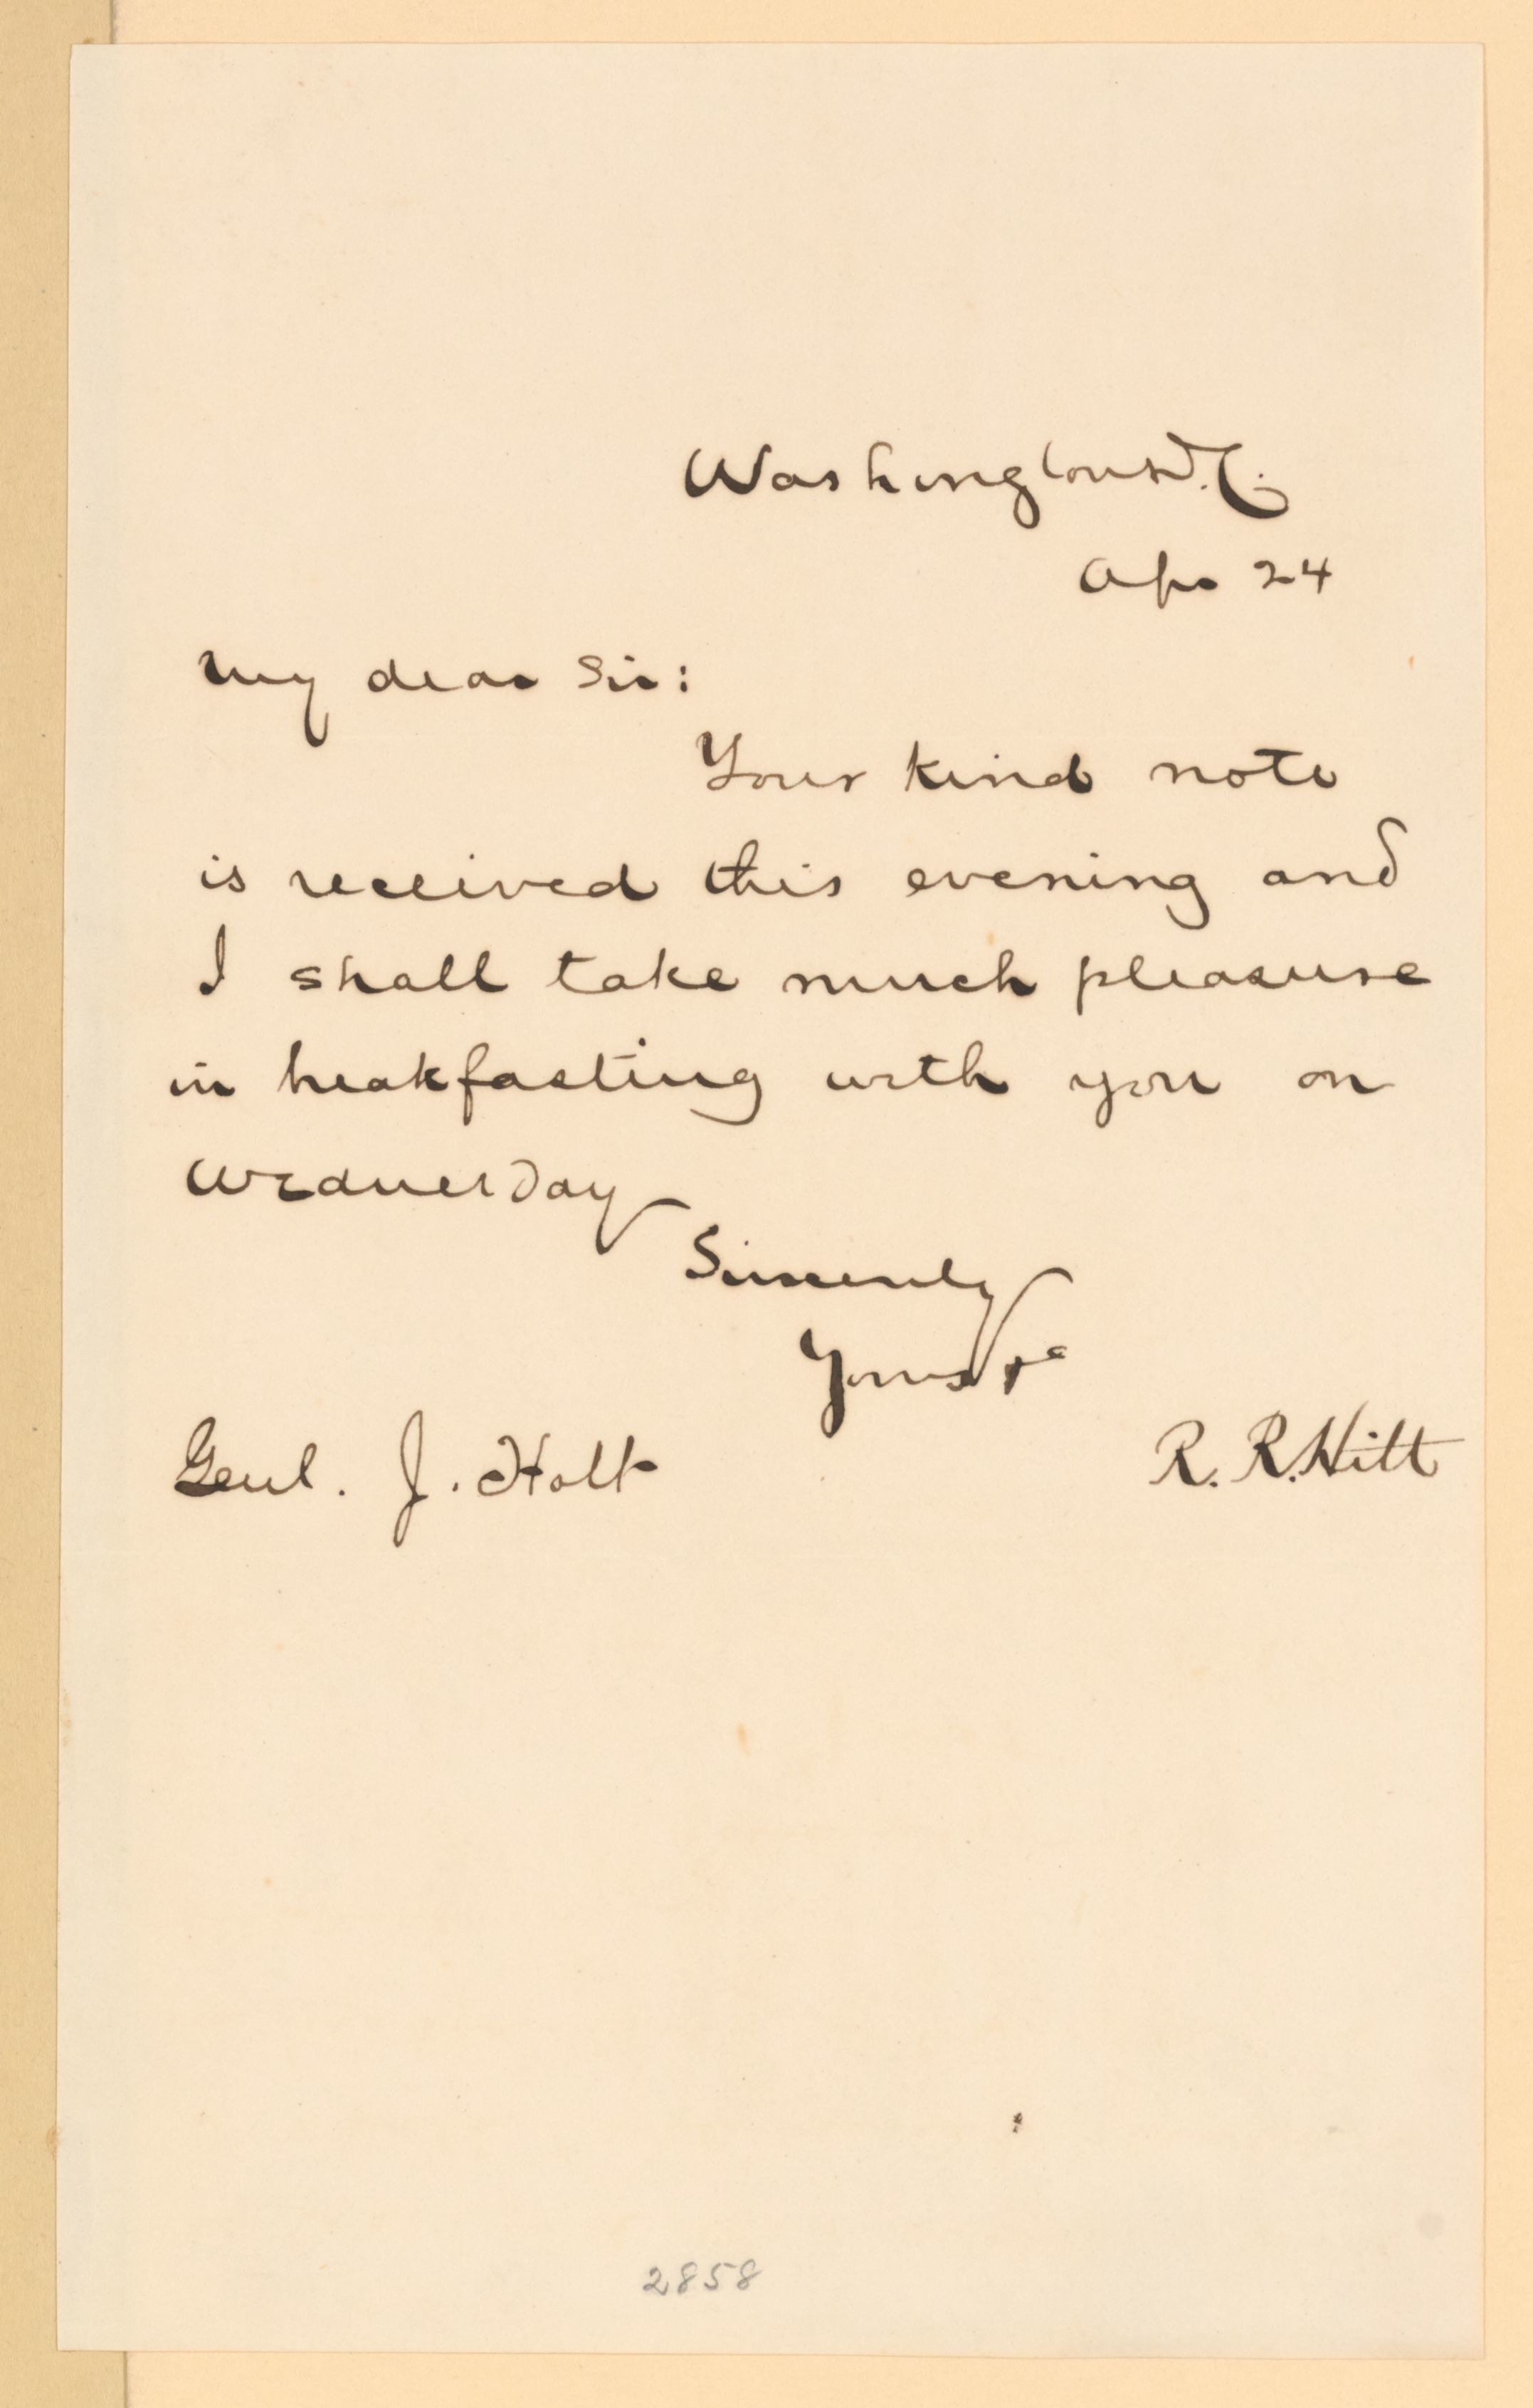 Washington D.C.
Apr 24
My dear Sir:
Your kind note
is received this evening and
I shall take much pleasure
in breakfasting with you on
Wednesday
Sincerely
Yours &c
Genl. J. Holt
R. R. Hitt
2858